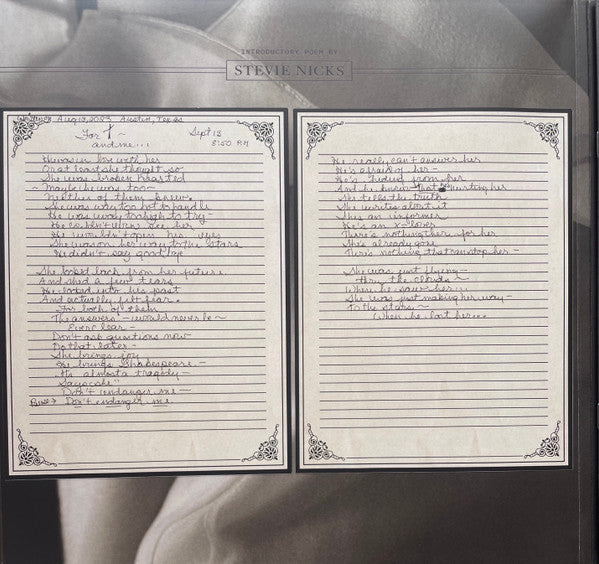 INTRODUCTORY POEM BY
STEVIE NICKS
Written Aug 13, 2023 Austin, Texas
For T ~ Sept 13
and me... 8:50 PM
He was in love with her
Or at least she thought so
She was broken hearted
~ Maybe he was too ~
Neither of them knew
She was way too hot to handle
He was way too high to try -
He couldn't even see her
He wouldn't open his eyes
She was on her way to the stars
He didn't say goodbye
She looked back from her future
And shed a few tears
He looked into his past
And actually felt fear -
For both of them
The answers - would never be -
Ever clear -
Don't ask questions now
Do that later -
She brings joy
He brings Shakespeare -
It's almost a tragedy -
Says she"
Don't endanger me -
Don't endanger me.
He really can't answer her
He's afraid of her -
He's hiding from her
And he knows that he's hurting her
She tells the truth
She writes about it
She's an informer
He's an x-lover
There's nothing there for her
She's already gone
There's nothing that can stop her -
She was just flying -
thru the clouds -
When he saw her...
She was just making her way -
To the stars -
When he lost her...